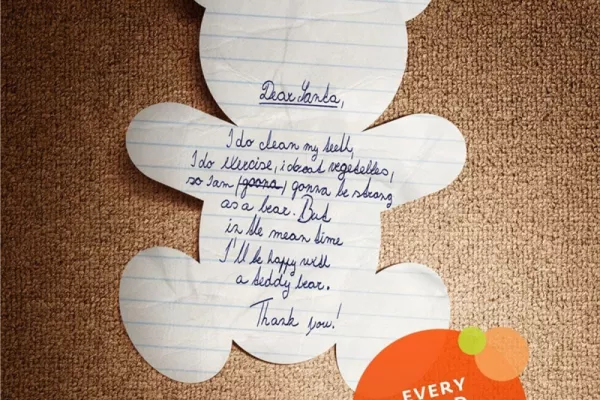 Dear Santa,
I do clean my teeth,
I do exercise, i do eat vegetables,
so I am (goona) gonna be strong
as a bear. But
in the mean time
I'll be happy with
a teddy bear.
Thank you!
EVERY